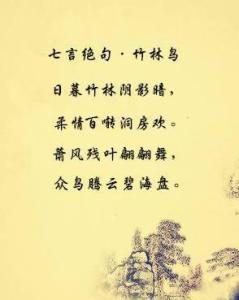 七言绝句·竹林鸟
日暮竹林阴影暗，
柔情百啭洞房欢。
萧风残叶翩翩舞，
众鸟腾云碧海盘。